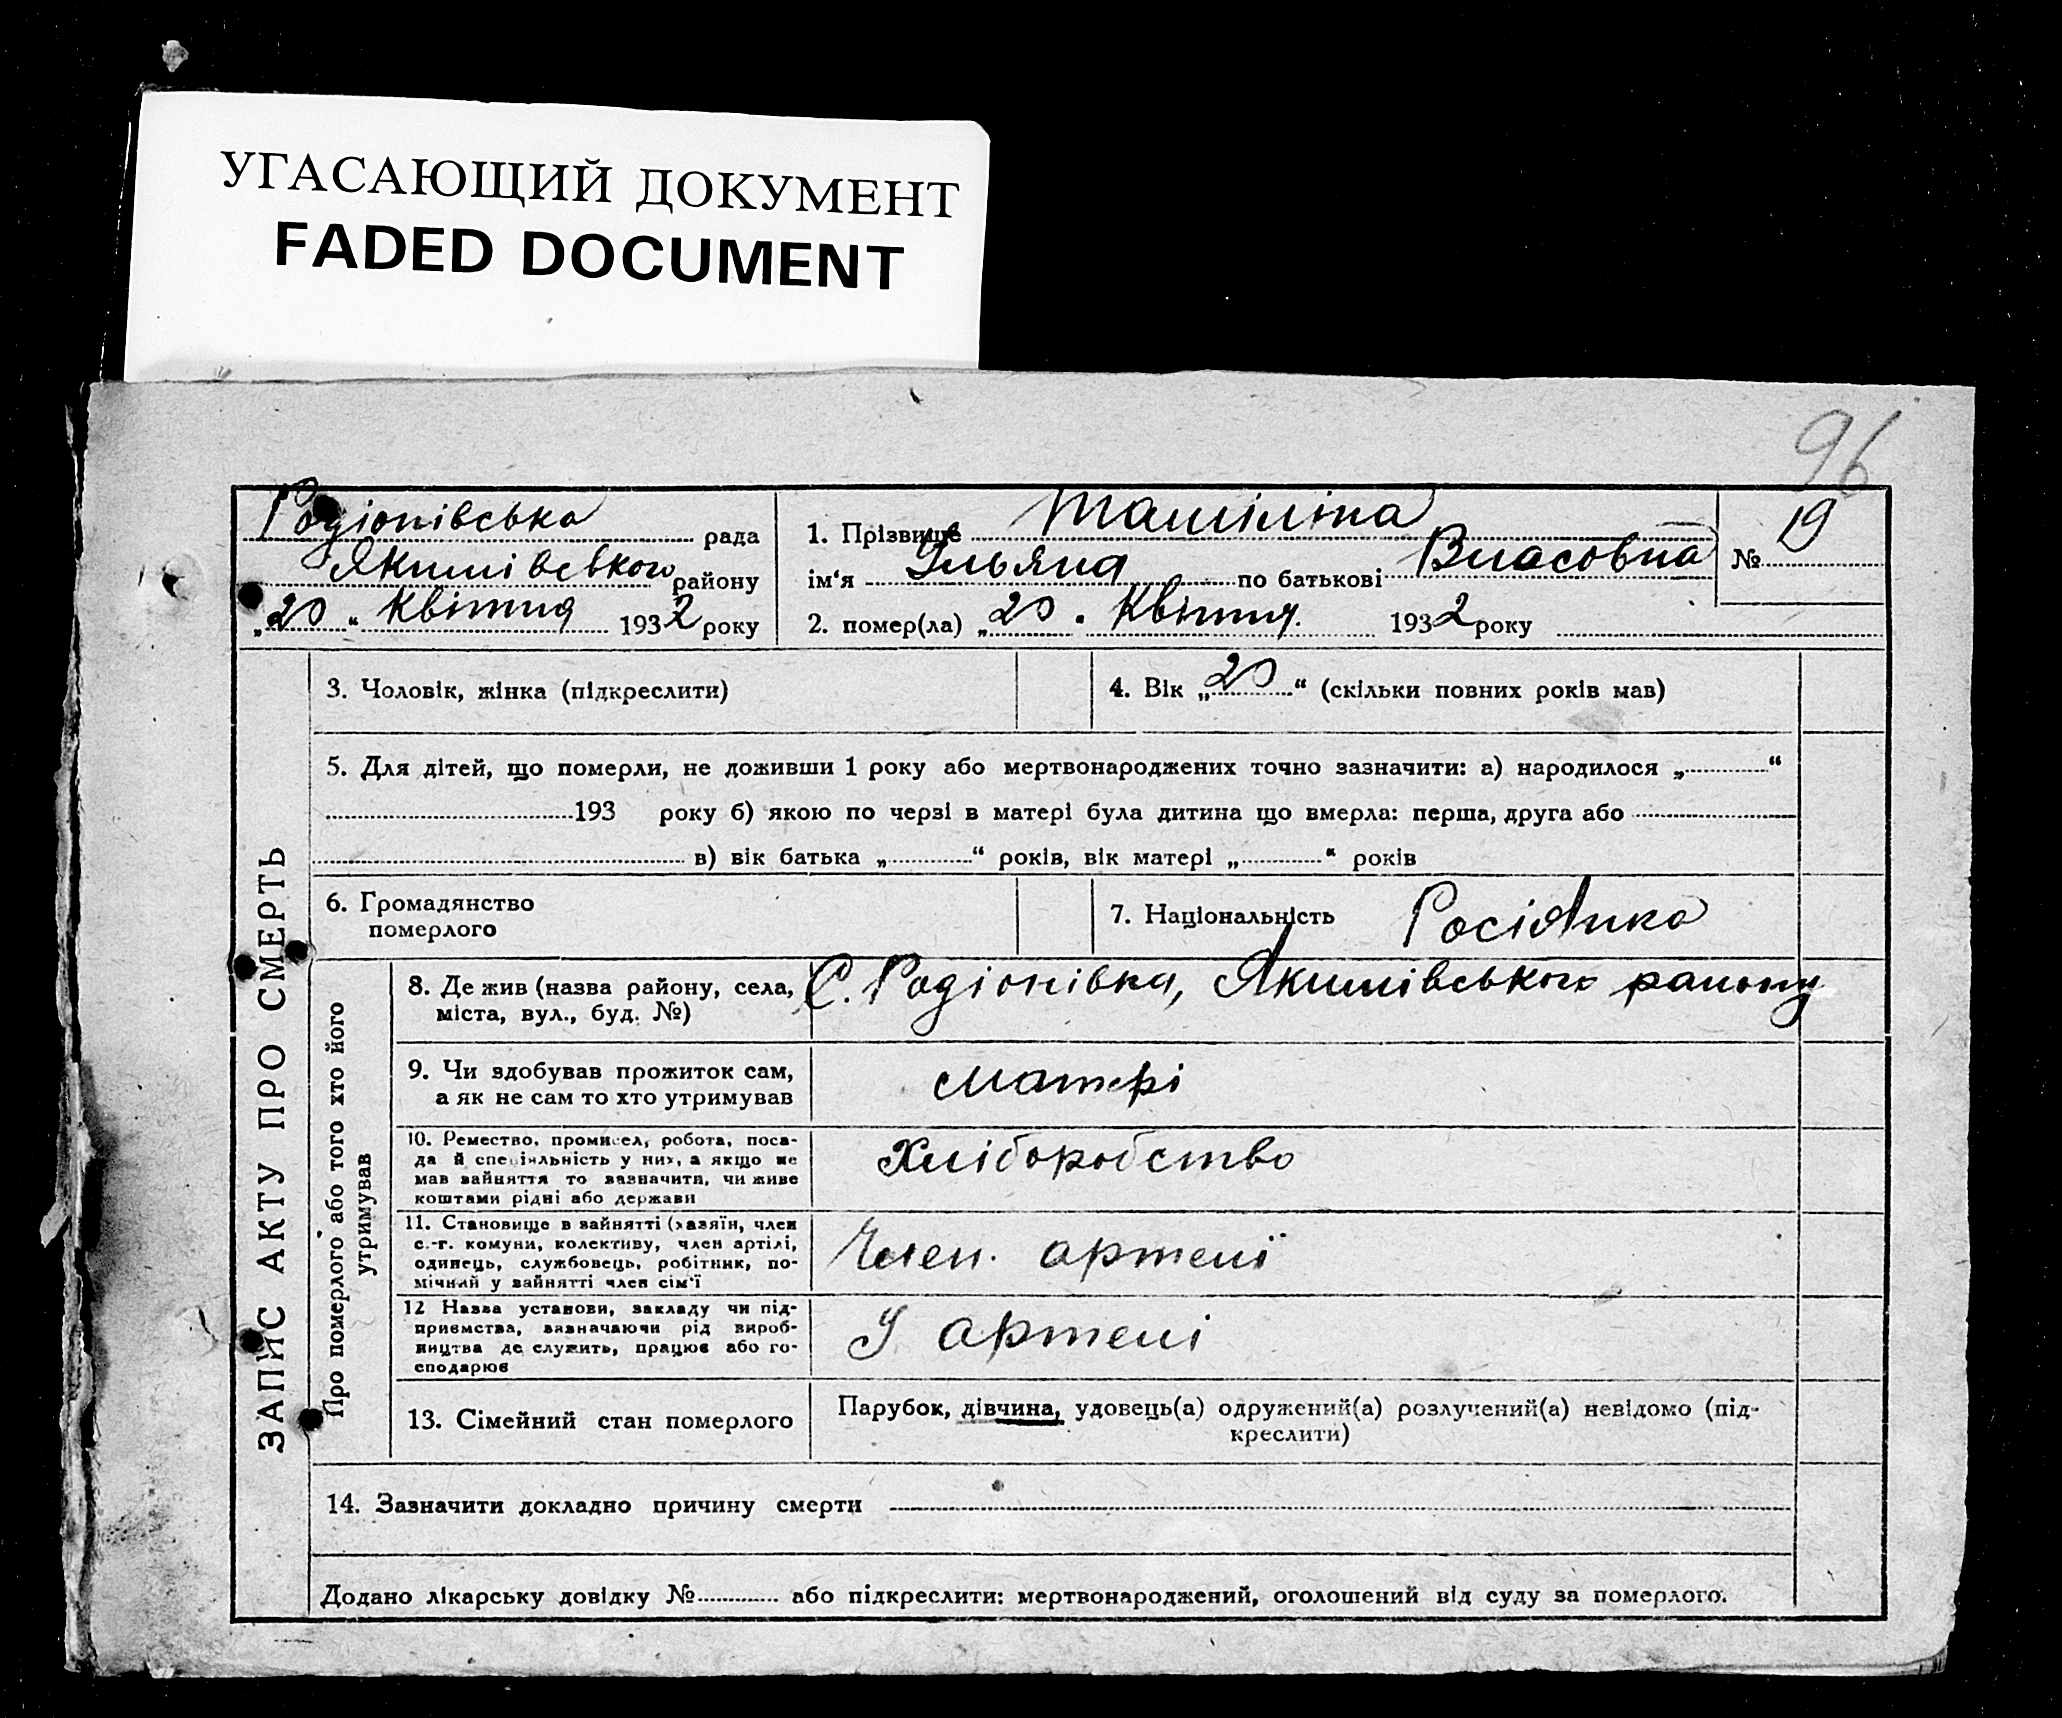 УГАСАЮЩИЙ ДОКУМЕНТ
FADED DOCUMENT
96
Родіонівська рада
Якимівського району
„20“ Квітня 1932 року
1. Прізвище Машіліна
ім‘я Ульяна по батькові Власовна
№ 19
2. помер(ла) „20. Квітня. 1932 року
ЗАПИС АКТУ ПРО СМЕРТЬ
3. Чоловік, жінка (підкреслити)
4. Вік „20“ (скільки повних років мав)
5. Для дітей, що померли, не доживши 1 року або мертвонароджених точно зазначити: а) народилося „............“
............193 року б) якою по черзі в матері була дитина що вмерла: перша, друга або ............
............ в) вік батька „............“ років, вік матері „............“ років
6. Громадянство
померлого
7. Національність Росіянка
Про померлого або того хто його
утримував
8. Де жив (назва району, села,
міста, вул., буд. №)
С. Родіонівка, Якимівського району
9. Чи здобував прожиток сам,
а як не сам то хто утримував
матері
10. Ремество, промисел, робота, поса-
да й спеціяльність у них, а якщо не
мав зайняття то зазначити, чи живе
коштами рідні або держави
Хліборобство
11. Становище в зайнятті (хазяїн, член
с.-г. комуни, колективу, член артілі,
одинець, службовець, робітник, по-
мічний у зайнятті член сім‘ї
Член. артелі
12 Назва установи, закладу чи під-
приємства, зазначаючи рід вироб-
ництва де служить, працює або го-
сподарює
У артелі
13. Сімейний стан померлого
Парубок, дівчина, удовець(а) одружений(а) розлучений(а) невідомо (під-
креслити)
14. Зазначити докладно причину смерти
Додано лікарську довідку №............ або підкреслити: мертвонароджений, оголошений від суду за померлого.